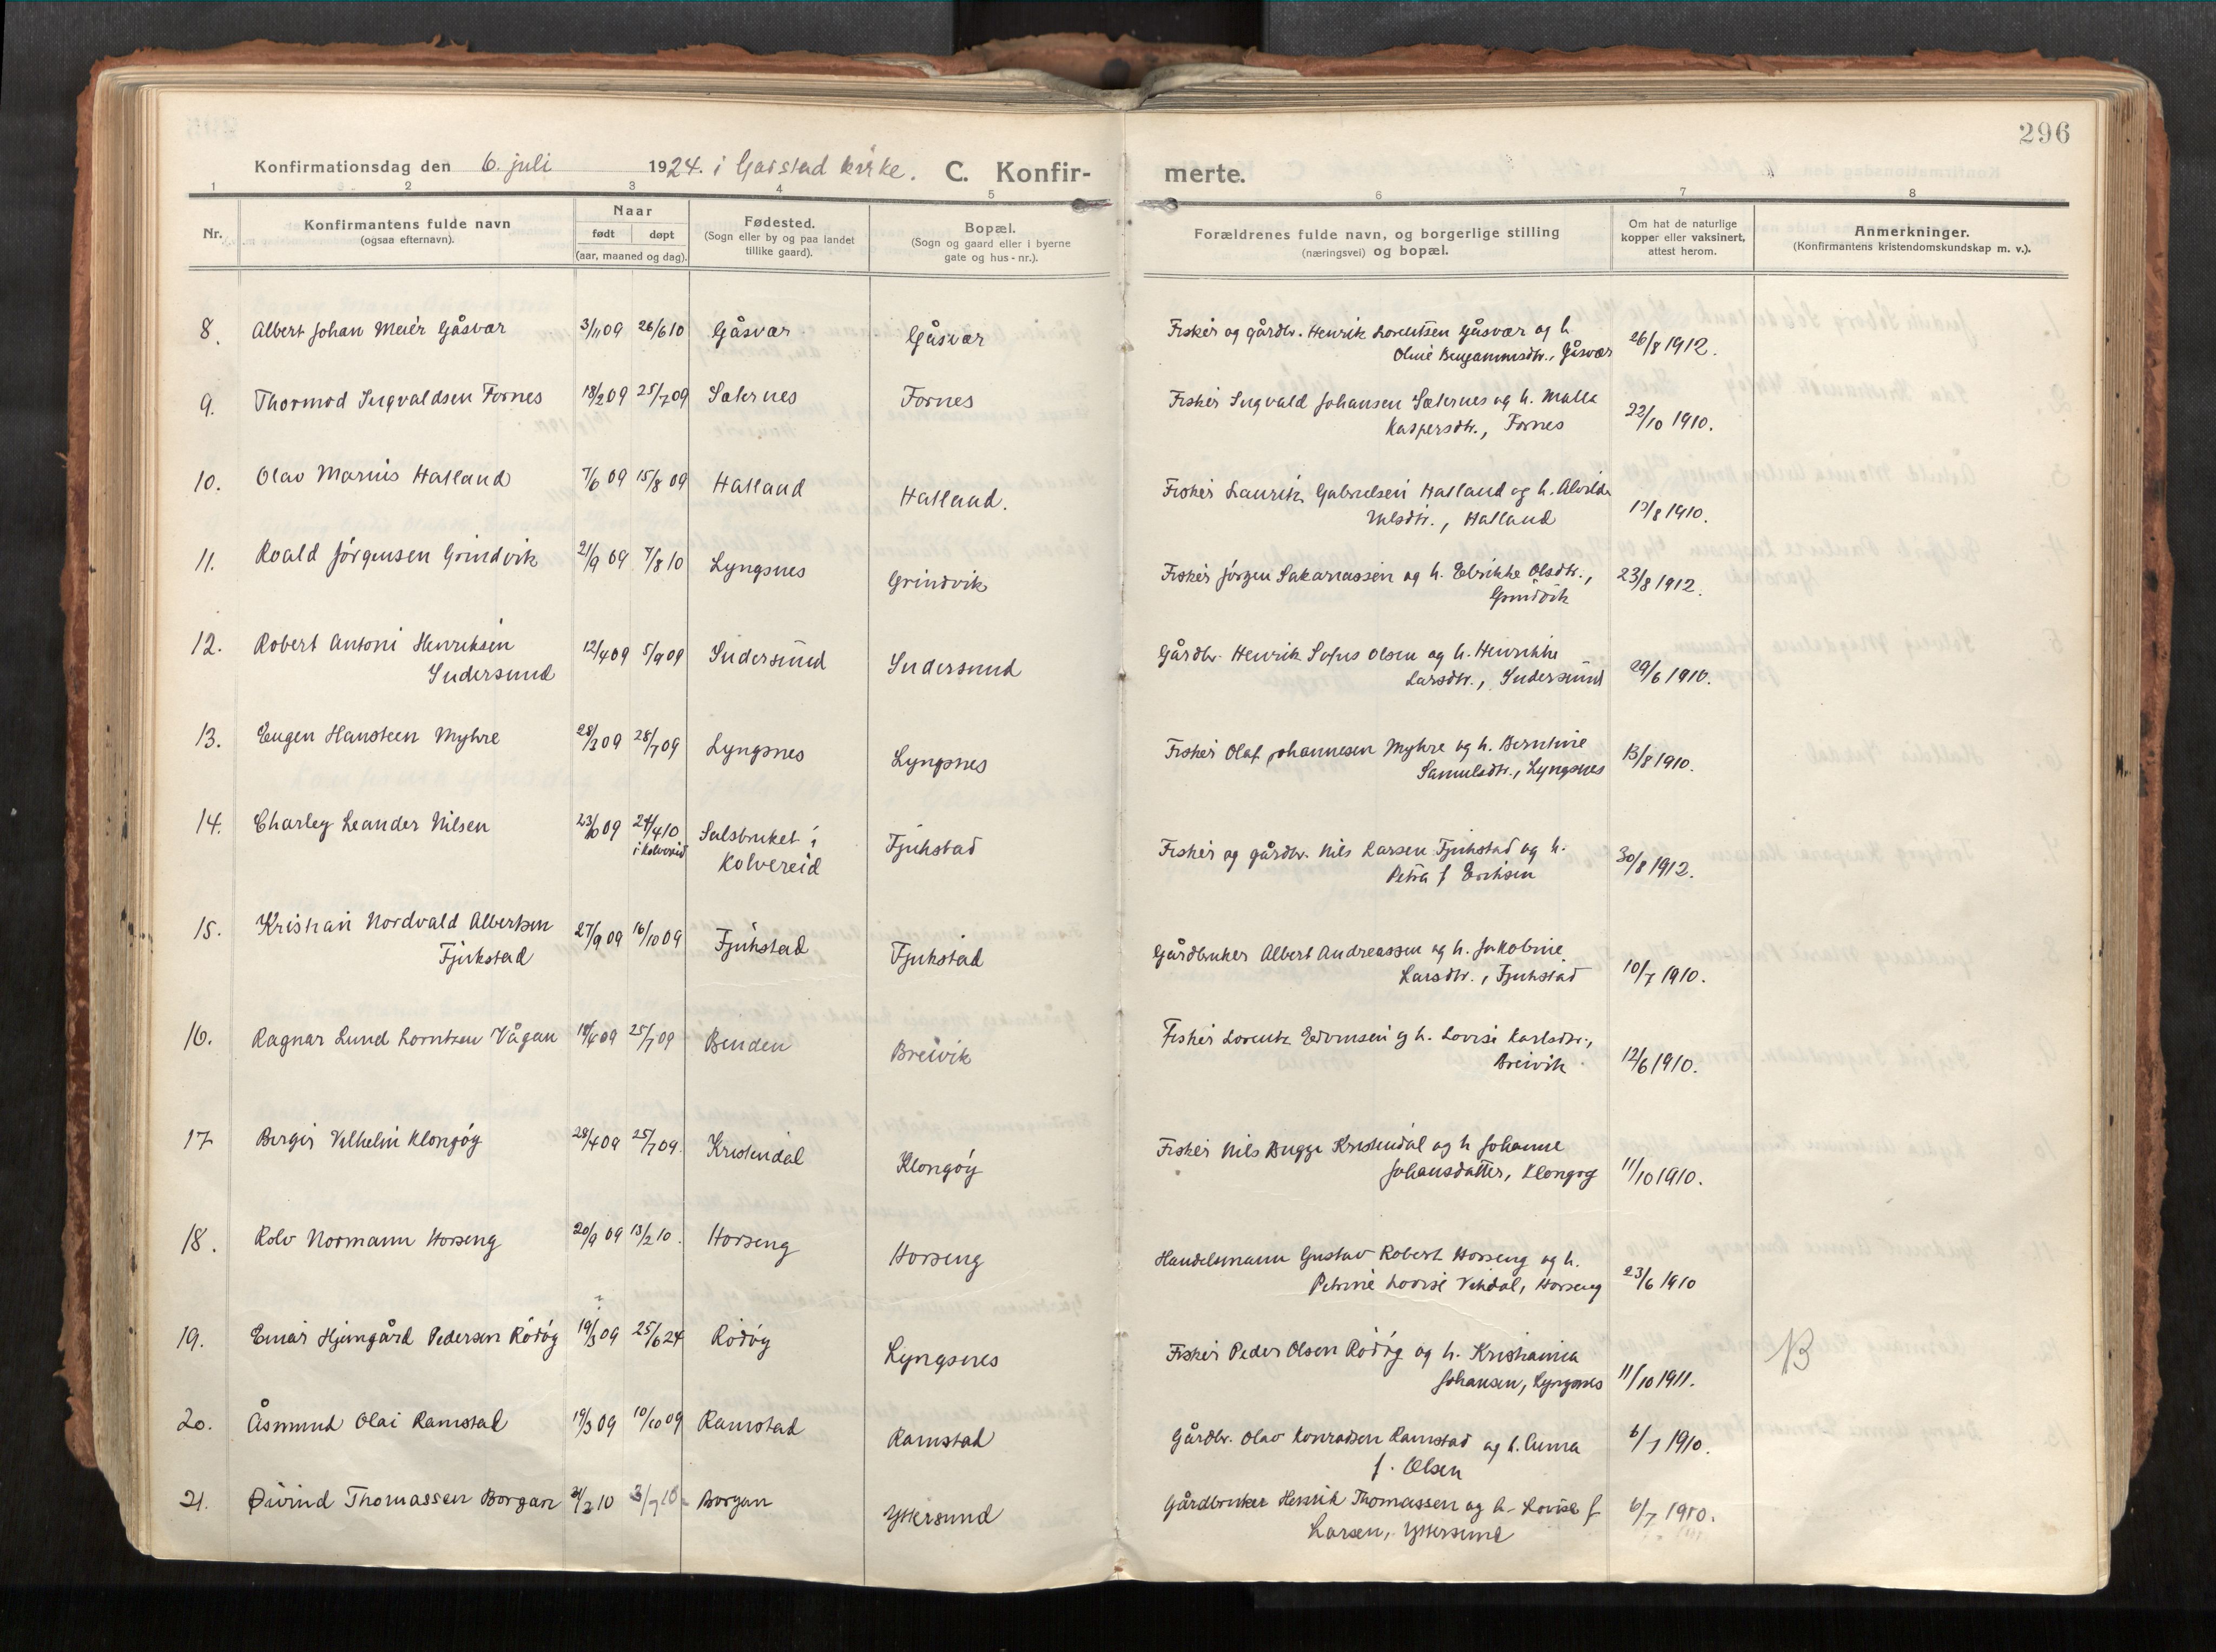 296
Konfirmationsdag den 6. juli 1924. i Garstad kirke. C. Konfirmerte.
1 2 3 4 5 6 7 8
Nr.
Konfirmantens fulde navn
(ogsaa efternavn).
Naar
født døpt
(aar, maaned og dag).
Fødested.
(Sogn eller by og paa landet
tillike gaard).
Bopæl.
(Sogn og gaard eller i byerne
gate og hus-nr.).
Forældrenes fulde navn, og borgerlige stilling
(næringsvei) og bopæl.
Om hat de naturlige
kopper eller vaksinert,
attest herom.
Anmerkninger.
(Konfirmantens kristendomskundskap m. v.).
8. Albert Johan Meier Gåsvær 3/11 09 26/6 10 Gåsvær Gåsvær Fisker og gårdbr. Henrik Lorentsen Gåsvær og h.
Oline Bengaminsdtr., Gåsvær 26/8 1912.
9. Thormod Ingvaldsen Fornes 18/2 09 25/7 09 Sæternes Fornes Fisker Ingvald Johansen Sæternes og h. Malla
Kaspersdtr., Fornes 22/10 1910.
10. Olav Marius Halland 7/6 09 15/8 09 Halland Halland. Fisker Laurits Gabrielsen Halland og h. Alvilda
Nilsdtr., Halland 15/8 1910.
11. Roald Jørgensen Grindvik 21/9 09 7/8 10 Lyngsnes Grindvik Fisker Jørgen Sakariassen og h. Elrikke Olsdtr.,
Grindvik 23/8 1912.
12. Robert Antoni Henriksen
Indersund 12/4 09 5/9 09 Indersund Indersund Gårdbr. Henrik Sofus Olsen og h. Henrikke
Larsdtr., Indersund 29/6 1910.
13. Eugen Hansteen Myhre 28/3 09 28/7 09 Lyngsnes Lyngsnes Fisker Olaf Johannesen Myhre og h. Berntine
Samuelsdtr., Lyngsnes 13/8 1910.
14. Charley Leander Nilsen 09 24/4 10
i Kolvereid Salsbruket i
Kolvereid Fjukstad Fisker og gårdbr. Nils Larsen Fjukstad og h.
Petra f Eriksen 30/8 1912.
15. Kristian Nordvald Albertsen
Fjukstad 27/9 09 16/10 09 Fjukstad Fjukstad Gårdbruker Albert Andreassen og h. Jakobine
Larsdtr., Fjukstad 10/7 1910.
16. Ragnar Lund Lorntsen Vågan 09 25/7 09 Binden Breivik Fisker Lorents Edvinsen og h. Lovise Karlsdtr.,
Breivik 12/6 1910.
17 Birger Vilhelm Klongøy 28/4 09 25/7 09. Kristendal Klongøy Fisker Nils Bugge Kristendal og h Johanne
Johansdatter, Klongøy 11/10 1910.
18. Rolv Normann Horseng 20/9 09 13/2 10. Horseng Horseng Handelsmann Gustav Robert Horseng og h.
Petrine Lovise Vikdal, Horseng 23/6 1910
19. Einar Hjemgård Pedersen Rödöy 19/3 09 25/6 24 Rödöy Lyngsnes Fisker Peder Olsen Rödöy og h. Kristianna
Johansen, Lyngsnes 11/10 1911. B
20. Åsmund Olai Ramstad 19/3 09 10/10 09 Ramstad Ramstad Gårdbr. Olav Konradsen Ramstad og h. Anna
f. Olsen 6/7 1910.
21. Øivind Thomassen Borgan 10 3/7 10 Borgan Yttersund Gårdbruker Henrik Thomassen og h. Lovise f
Larsen, Yttersund 6/7 1910.